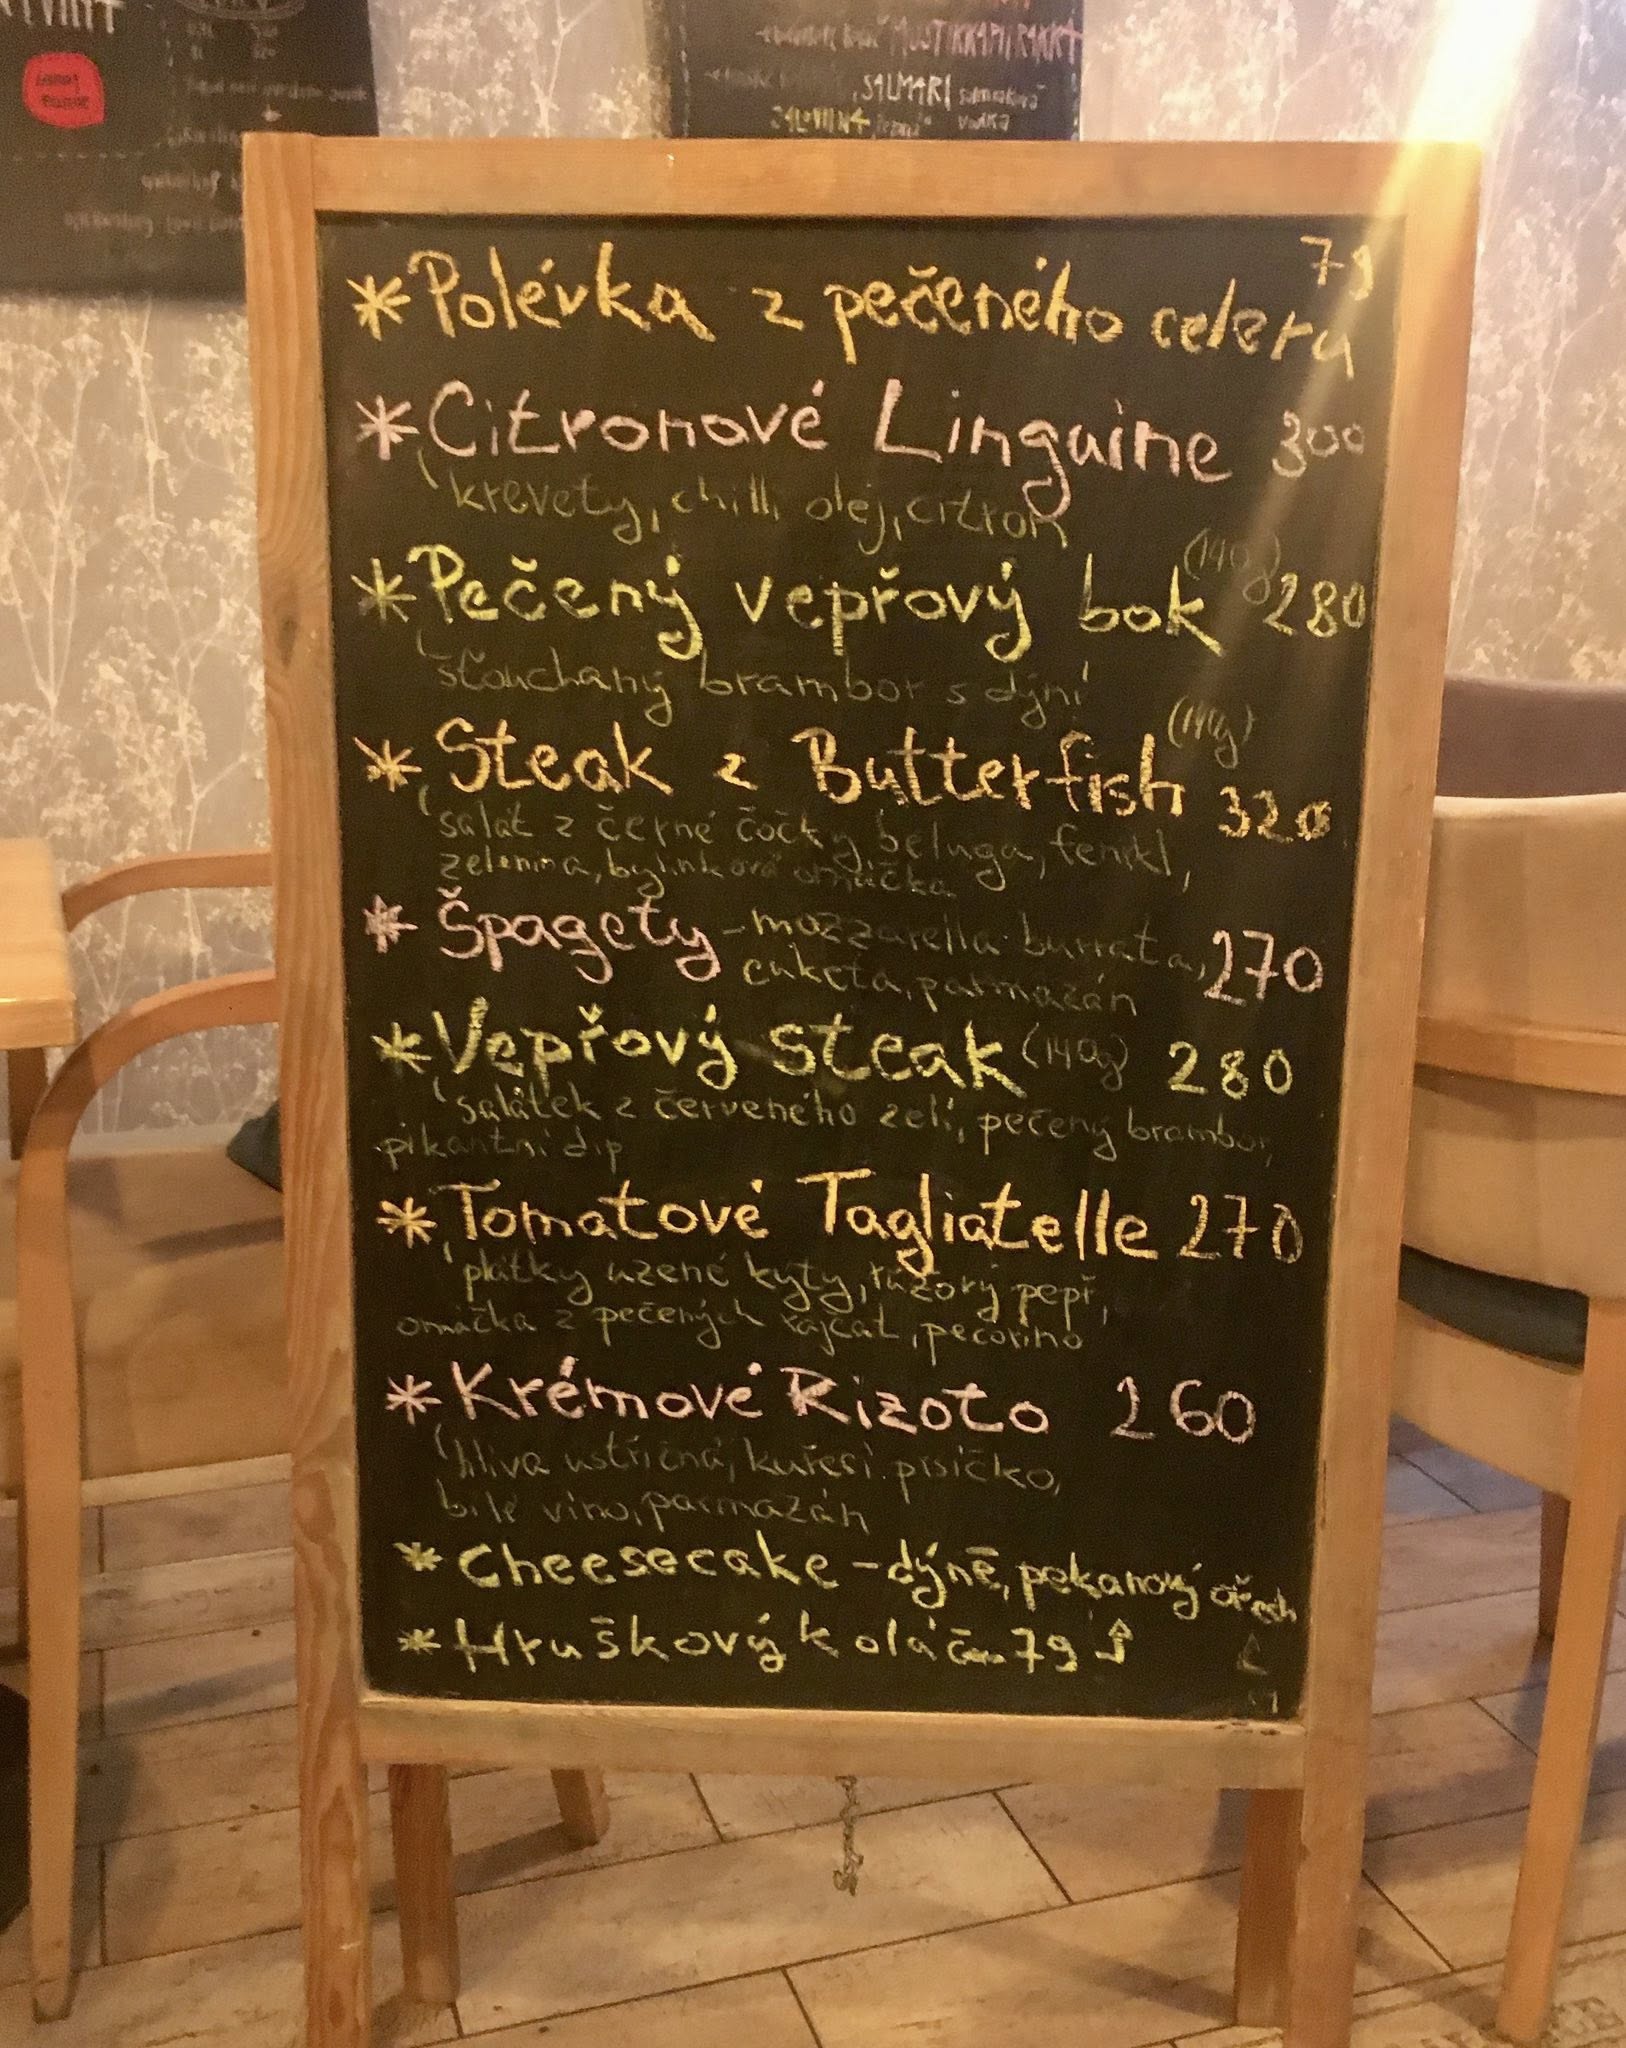 MUSTIKKAPIIRAKKA
SALMARI salmiaková
vodka
79
*Polévka z pečeného celeru
*Citronové Linguine 300
krevety, chilli olej, citron
(140g)
*Pečený vepřový bok 280
šťouchaný brambor s dýní
(140g)
*Steak z Butterfish 320
salát z černé čočky beluga, fenikl,
zelenina, bylinková omáčka
*Špagety - mozzarella burrata, 270
cuketa, parmazán
*Vepřový steak (140g) 280
salátek z červeného zelí, pečený brambor,
pikantní dip
*Tomatové Tagliatelle 270
plátky uzené kýty, růžový pepř,
omáčka z pečených rajčat, pecorino
*Krémové Rizoto 260
hlíva ústřičná, kuřecí prsíčko,
bílé víno, parmazán
*Cheesecake - dýně, pekanový ořech
*Hruškový koláč 79